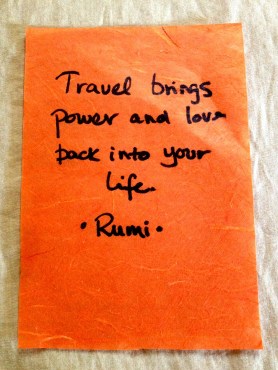 Travel brings
power and love
back into your
life.
• Rumi •